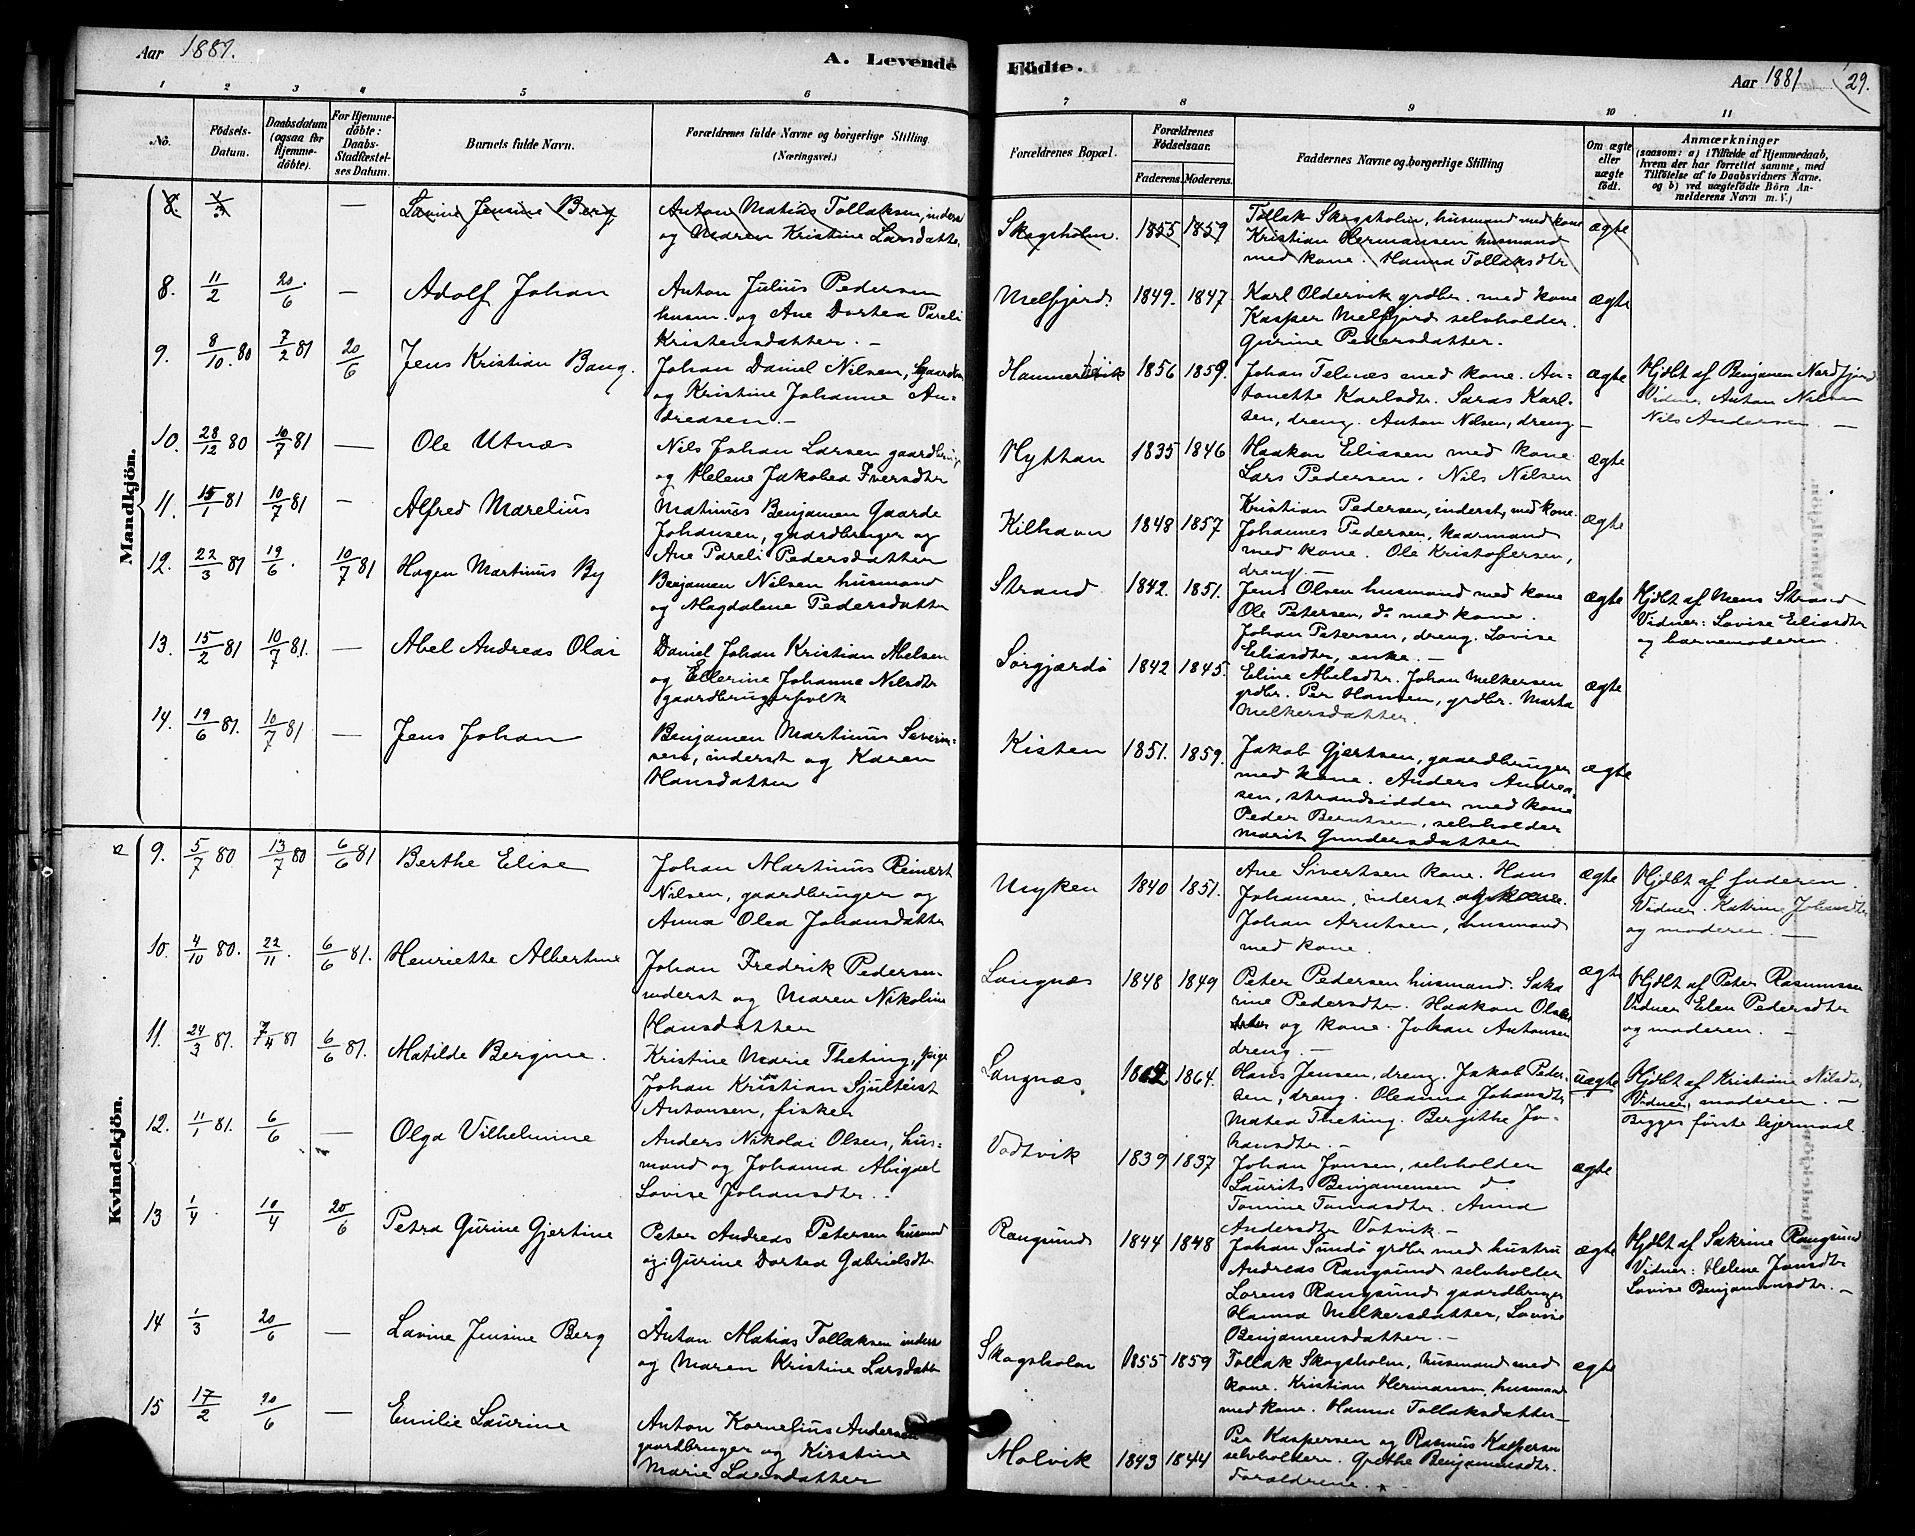 Aar 1881.
A. Levende Födte.
Aar 1881
29.
1 2 3 4 5 6 7 8 9 10 11
Nö.
Födsels-
Datum.
Daabsdatum
(ogsaa for
Hjemme-
döbte).
For Hjemme-
döbte:
Daabs-
Stadfæstel-
ses Datum.
Barnets fulde Navn.
Forældrenes fulde Navne og borgerlige Stilling
(Næringsvei.)
Forældrenes Bopæl.
Forældrenes
Födselsaar.
Faderens. Moderens.
Faddernes Navne og borgerlige Stilling
Om ægte
eller
uægte
födt.
Anmærkninger
(saasom: a) i Tilfælde af Hjemmedaab,
hvem der har forrettet samme, med
Tilföielse af to Daabsvidners Navne.
og b) ved uægtefödte Börn An-
melderens Navn m. V.)
Mandkjön.
8. 1/3 — Lavine Jensine Berg
Anton Matias Tollaksen, inderst
og Maren Kristine Larsdatter
Skogsholm. 1855 1859
Tollak Skogsholm, husmand med kone
Kristian Hermansen husmand
med kone. Hanna Tollaksdtr
ægte
8. 11/2 20/6 — Adolf Johan
Anton Julius Pedersen
husm. og Ane Dortea Pareli
Kristensdatter. —
Melfjord. 1849. 1847.
Karl Oldervik grdbr. med kone
Kasper Melfjord selvholder.
Gurine Pedersdatter.
ægte
9. 8/10 80 7/2 81 20/6 Jens Kristian Bang.
Johan Daniel Nilsen,
og Kristine Johanne An-
dreasen. —
1856 1859.
Johan Telnæs med kone. An-
tonette Karlsdtr. Saras Karl-
sen, dreng. Anton Nilsen, dreng —
ægte
Hjdbt af Benjamen Nordfjord
Vidner Anton Nilsen
Nils Andersen. —
10. 28/12 80 10/7 81 — Ole Utnæs
Nils Johan Larsen gaardbruger
og Helene Jakobea Iversdtr
Hyttan 1835 1846
Haakon Eliasen med kone
Lars Pedersen. Nils Nilsen
ægte
11. 15/1 81 10/7 81 — Alfred Marelius
Matinus Benjamen Gaarde
Johansen, gaardbruger og
Ane Pareli Pedersdatter
Kilhavn 1848 1857
Kristian Pedersen, inderst, med kone.
Johannes Pedersen, kaarmand
med kone. Ole Kristofersen,
dreng. —
ægte
12. 22/3 81 19/6. 10/7 81 Hagen Martinus By
Benjamen Nilsen husmand
og Magdalene Pedersdatter
Strand 1842. 1851.
Jens Olsen husmand med kone
Ole Petersen, do med kone.
Johan Petersen, dreng. Lovise
Eliasdtr, enke. —
ægte
Hjdbt af Mons Strand
Vidner: Lovise Eliasdtr
og barnemoderen.
13. 15/2 81 10/7 81. — Abel Andreas Olai
Daniel Johan Kristian Abelsen
og Ellerine Johanna Nilsdtr
gaardbrugerfolk
Sørgjærdö 1842 1845.
Eline Abelsdtr. Johan Melkersen
grdbr. Per Hansen, grdbr. Marta
Melkersdatter.
ægte
14. 19/6 81. 10/7 81 — Jens Johan
Benjamen Martinus Severin-
sen, inderst og Karen
Hansdatter
Kisten 1851. 1859.
Jakob Gjertsen, gaardbruger
med kone. Anders Andrea-
sen, strandsidder med kone
Peder Berntsen, selvholder
Marit Gundersdatter
ægte
Kvindekjön.
9. 5/7 80 13/7 80 6/6 81 Berthe Elise
Johan Martinus Reinert
Nilsen, gaardbruger og
Anna Olea Johansdatter
Myken 1840 1851.
Ane Sivertsen kone. Hans
Johansen, inderst
Johan Arntsen, husmand
med kone.
ægte
Hjdbt af faderen.
Vidner. Katrine Johansdtr
og moderen. —
10. 4/10 80. 22/11. 6/6 81. Henriette Albertine
Johan Fredrik Pedersen
inderst og Maren Nikoline
Hansdatter
Langnæs 1848 1849
Peter Pedersen husmand. Saka
rine Pedersdtr. Haakon Olsen
og kone. Johan Antonsen
dreng. —
ægte
Hjdbt af Peter Rasmussen
Vidner Elen Pedersdtr
og moderen. —
11. 24/3 81. 7/4 81 6/6 81. Matilde Bergine.
Kristine Marie Theting, pige
Johan Kristian Sjulteist
Antonsen, fisker
Langnæs 1864.
Hans Jensen, dreng. Jakob Peter-
sen, dreng. Oleanna Johansdtr,
Matea Theting. Bergithe Jo-
hansdtr. —
uægte
Hjdbt af Kristiane Nilsdtr
Vidner, moderen. —
Begges förste lejermaal.
12. 11/1 81. 6/6 — Olga Vilhelmine
Anders Nikolai Olsen, hus-
mand og Johanna Abigael
Lovise Johansdtr.
Vodtvik 1839 1837
Johan Jonsen, selvholder
Laurits Benjamensen do
Tomine Tomasdtr. Anna
Andersdtr Votvik —
ægte
13 1/4. 10/4 20/6 Petra Gurine Gjertine
Peter Andreas Petersen husmd
og Gurine Dortea Gabrielsdtr
Rangsund 1844 1848
Johan Sundö grdbr med hustru
Andreas Rangsund selvholder
Lorens Rangsund gaardbruger
Hanna Melkersdatter, Lovise
Benjamensdatter. —
ægte
Hjdbt af Sakrine Rangsund
Vidner: Helene Jansdtr
Lovise Benjamensdtr. —
14 1/3 20/6 — Lavine Jensine Berg
Anton Matias Tollaksen inderst
og Maren Kristine Larsdattr
Skogsholm 1855 1859
Tollak Skogsholm, husmand med
kone. Kristian Hermansen, husmand
med kone. Hanna Tollaksdatter —
ægte
15 17/2 20/6 — Emilie Laurine
Anton Kornelius Andersen
gaardbruger og Kirstine
Marie Larsdatter
Molvik 1843 1844
Per Kaspersen og Rasmus Kaspersen
selvholdere. Grethe Benjamensdtr.
Forældrene.